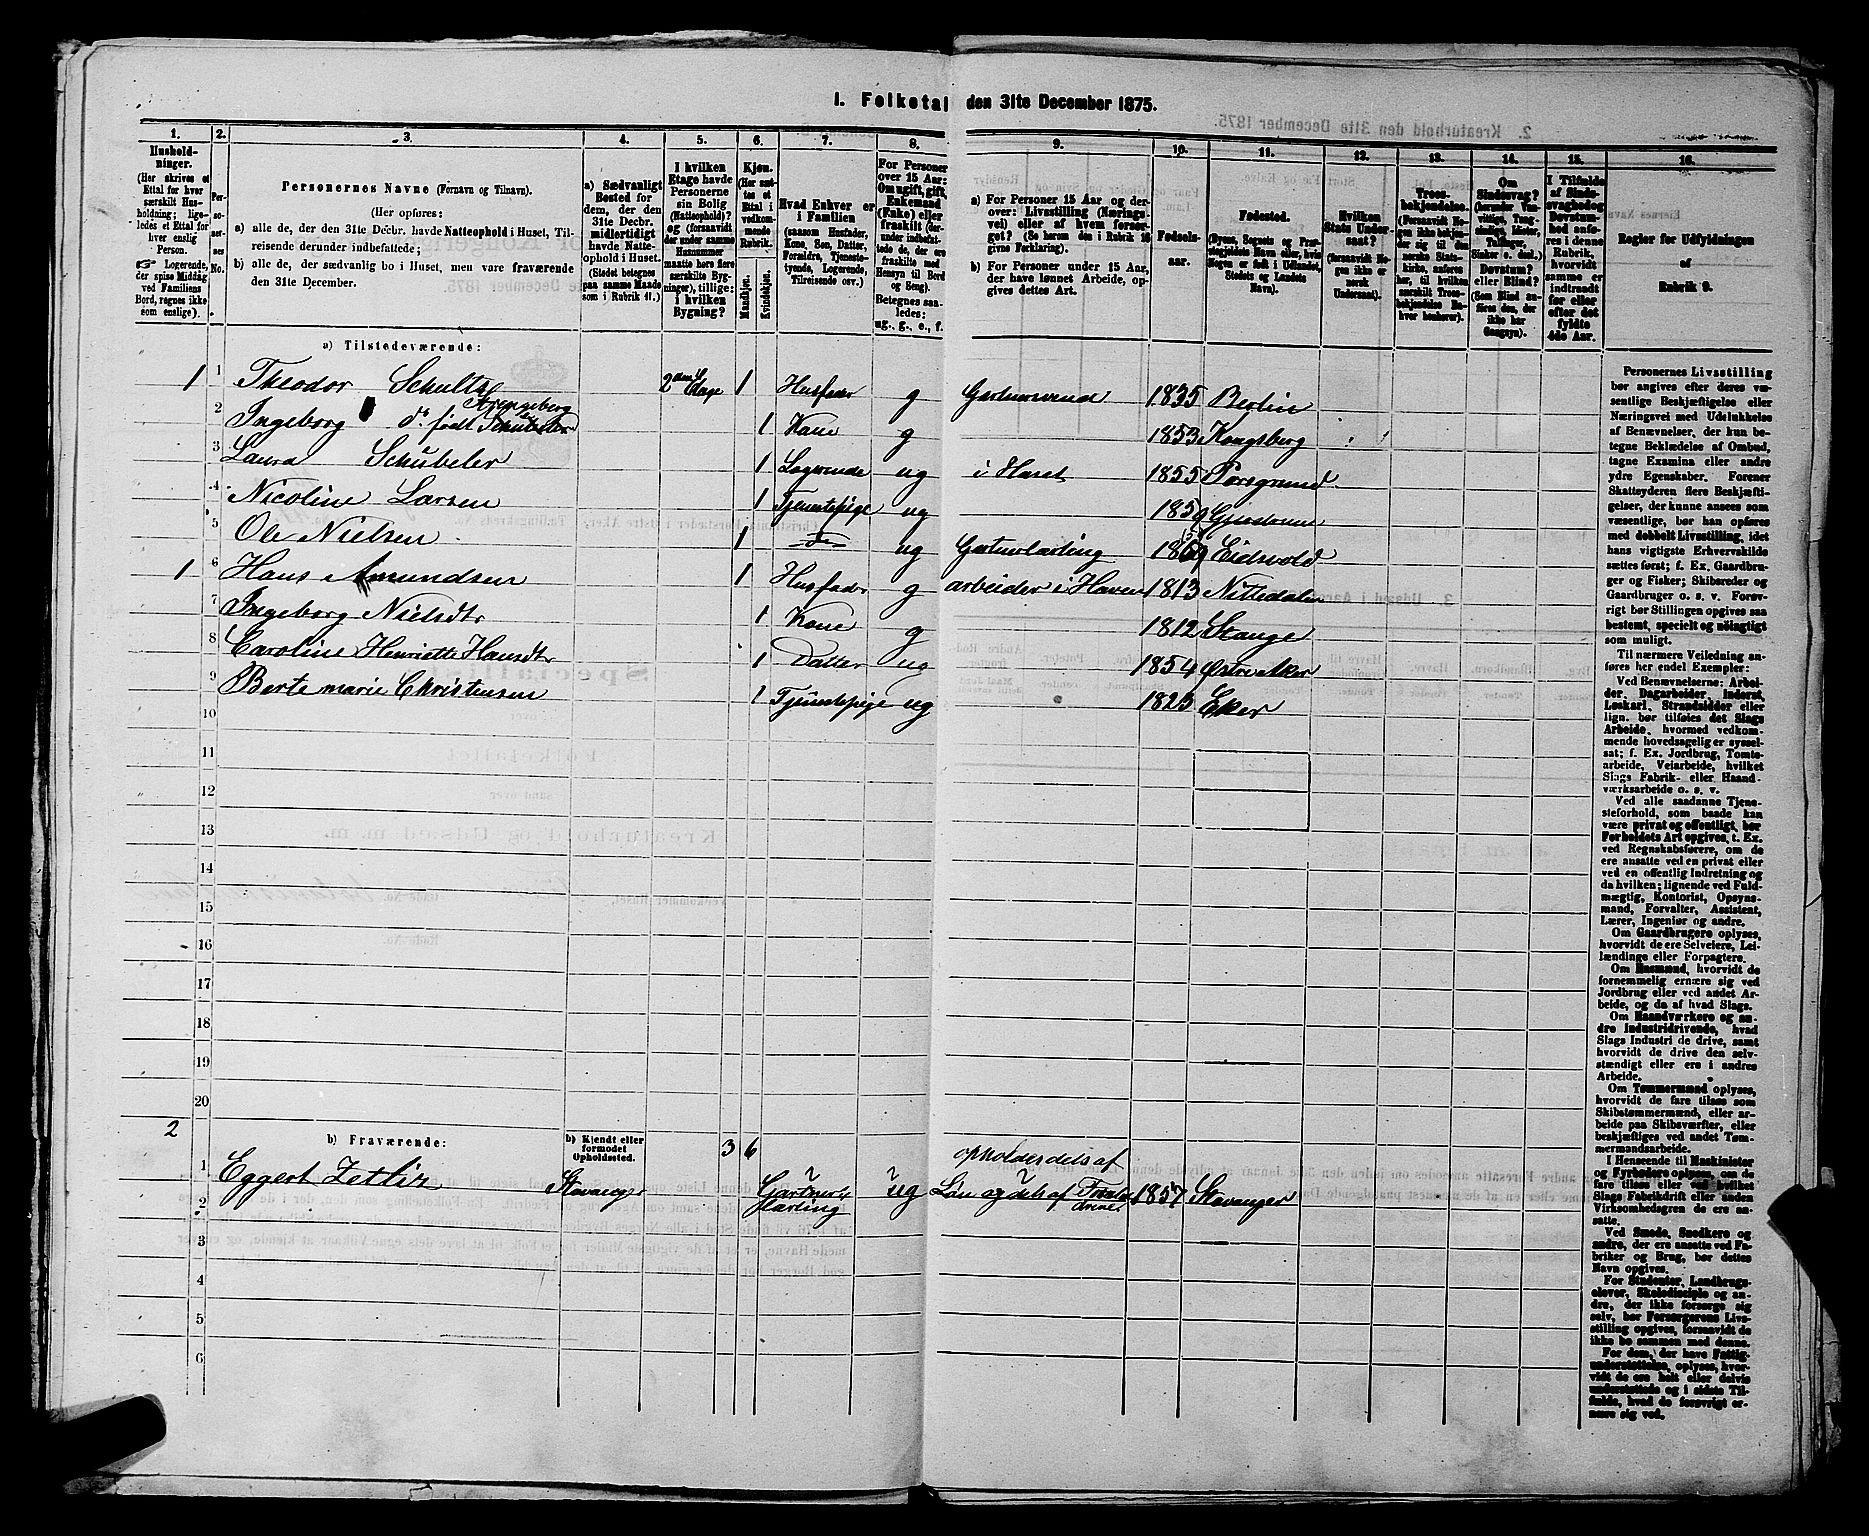 1. Folketal den 31te December 1875.
1. 2. 3. 4. 5. 6. 7. 8. 9. 10. 11. 12. 13. 14. 15. 16.
Hushold-
ninger.
(Her skrives et
Ettal for hver
særskilt Hus-
holdning; lige-
ledes et Ettal for
hver enslig
Person.
Logerende,
der spise Middag
ved Familiens
Bord, regnes ikke
som enslige).
Per-
so-
ner-
nes
No.
Personernes Navne (Fornavn og Tilnavn).
(Her opføres:
a) alle de, der den 31te Decbr. havde Natteophold i Huset, Til-
reisende derunder indbefattede;
b) alle de, der sædvanlig bo i Huset, men vare fraværende
den 31te December.
a) Sædvanligt
Bosted for
dem, der den
31te Decbr.
midlertidigt
havde Natte-
ophold i Huset.
(Stedet betegnes
paa samme Maade
som i Rubrik 11.)
I hvilken
Etage havde
Personerne
sin Bolig
(Natteophold)?
og (forsaavidt
der under samme
Husnummer
maatte høre flere
særskilte Byg-
ninger), tillige:
i hvilken
Bygning?
Kjøn.
(Her sæt-
tes et
Ettal i
vedkom-
mende
Rubrik.
Mandkjøn.
Kvindekjøn.
Hvad Enhver er
i Familien
(saasom Husfader,
Kone, Søn, Datter,
Forældre, Tjeneste-
tyende, Logerende,
Tilreisende osv.)
For Personer
over 15 Aar:
Om ugift, gift,
Enkemand
(Enke) eller
fraskilt
Betegnes saa-
ledes:
ug., g., e., f.
a) For Personer 15 Aar og der-
over: Livsstilling (Nærings-
vei) eller af hvem forsør-
get? (Se herom den i Rubrik 16
givne Forklaring).
b) For Personer under 15 Aar,
der have lønnet Arbeide, op-
gives dettes Art.
Fødsels-
aar.
Fødested.
(Byens, Sognets og Præ-
stegjeldets Navn eller, hvis
Nogen er født i Udlandet,
Stedets og Landets
Navn).
Hvilken
Stats Under-
saat?
(forsaavidt No-
gen ikke er
norsk
Undersaat).
Troes-
bekjendelse.
(Forsaavidt No-
gen ikke hører
der sig til den
norske Stats-
kirke, anføres
her, til hvilken
særskilt Troes-
bekjendelse En-
hver henhører).
Om
Sindssvag?
Døvstum?
eller Blind?
(Som Blind an-
føres den, der
ikke har
Gangsyn).
I Tilfælde
af Sinds-
svaghed og
Døvstum-
hed anfø-
res i denne
Rubrik,
hvorvidt
samme er
indtraadt
før eller
efter det
fyldte
4de Aar.
Regler for Udfyldningen
af
Rubrik 9.
a) Tilstedeværende:
1 1 Theodor Schultz 2den Etage 1 Husfader g Gartnersvend 1835 Berlin
2 Ingeborg do født Schübeler 1 Kone g 1853 Kongsberg
3 Laura Schübeler 1 Logerende ug i Huset 1855 Porsgrund
4 Nicoline Larsen 1 Tjenestepige ug
5 Ole Nielsen 1 do ug Gartnerlærling Eidsvold
1 6 Hans Amundsen 1 Husfader g arbeider i Haven 1813 Nittedalen
7 Ingeborg Nielsdtr 1 Kone g 1812 Stange
8 Caroline Henriette Hansdtr 1 Datter ug 1854 Østre Aker
9 Berte marie Christensen 1 Tjenestepige ug 1823 Eker
10
11
12
13
14
15
16
17
18
19
20
2 3 6
b) Fraværende:
b) Kjendt eller
formodet
Opholdssted.
opholder dels af
1 Eggert Stavanger Gartner-
2 Lærling ug Løn og dels af 1857 Stavanger
3
4
5
6
Personernes Livsstilling
bør angives efter deres væ-
sentlige Beskjæftigelse eller
Næringsvei med Udelukkelse
af Benævnelser, der kun be-
tegne Beklædelse af Ombud,
tagne Examina eller andre
ydre Egenskaber. Forener
Skattøyderen flere Beskjæfti-
gelser, der kunne ansees som
væsentlige, bør han opføres
med dobbelt Livsstilling, idet
hans vigtigste Erhvervskilde
sættes først; f. Ex. Gaardbru-
ger og Fisker; Skibsreder og
Gaardbruger o. s. v. Forøv-
rigt bør Stillingen opgives saa
bestemt, specielt og nøiagtigt
som muligt.
Til nærmere Veiledning an-
føres her endel Exempler:
Ved Benævnelserne: Arbei-
der, Dagarbeider, Inderst,
Løskarl, Strandsidder eller
lign. bør tilføies det Slags
Arbeide, hvormed vedkom-
mende hovedsagelig er syssel-
sat; f. Ex. Jordbrug, Tomte-
arbeide, Veiarbeide, hvilket
Slags Fabrik- eller Haand-
værksarbeide o. s. v.
Ved alle saadanne Tjene-
steforhold, som baade kan
være privat og offentligt, bør
Forholdets Art opgives, t. Ex.
ved Regnskabsførere, om de
ere ansatte ved en privat eller
ved en offentlig Indretning og
da hvilken; lignende ved Fuld-
mægtig, Kontorist, Opsyns-
mand, Forvalter, Assistent,
Lærer, Ingeniør og andre.
Om Gaardbrugere oplyses,
hvorvidt de ere Selveiere, Lei-
lændinge eller Forpagtere.
Om Husmænd, hvorvidt de
fornemmelig ernære sig ved
Jordbrug eller ved andet Ar-
beide, og da af hvad Slags.
Om Haandværkere og an-
dre Industridrivende, hvad
Slags Industri de drive, samt
hvorvidt de drive den selv-
stændigt eller ere i andres
Arbeide.
Om Tømmermænd oplyses,
hvorvidt de fare tilsøs som
Skibstømmermænd, eller ar-
beide paa Skibsværfter, eller
beskjæftiges ved andet Tøm-
mermandsarbeide.
I Henseende til Maskinister
og Fyrbødere oplyses, om de
fare tilsøs eller ved hvilket
Slags Fabrikdrift eller anden
Virksomhedsgren de ere an-
satte.
Ved Smede, Snedkere og
andre, der ere ansatte ved Fa-
briker og Brug, bør dettes
Navn opgives.
For Studenter, Landbrugs-
elever, Skoledisciple og an-
dre, der ikke forsørge sig
selv, bør Forsørgerens Livs-
stilling opgives, forsaavidt de
ikke bo sammen med denne.
For dem, der have Fattig-
understøttelse, oplyses, hvor-
vidt de ere helt eller delvis
understøttede og i sidste Til-
fælde, hvad de forøvrigt er-
nære sig ved.